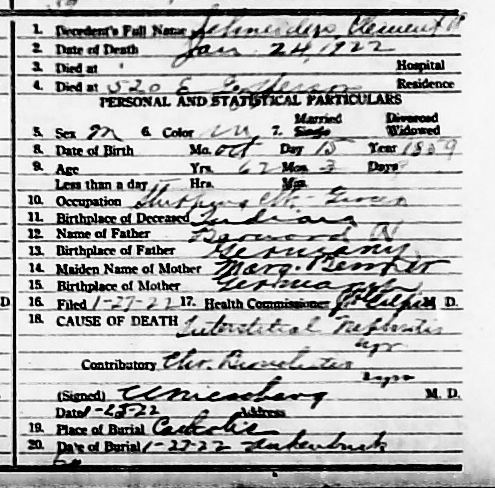 1. Decedent's Full Name Schneiders, Clement
2. Date of Death Jan 24, 1922
3. Died at Hospital
4. Died at 520 E. Jefferson Residence
PERSONAL AND STATISTICAL PARTICULARS
Married Divorced
5. Sex M 6. Color W 7. Single Widowed
8. Date of Birth Mo. Oct Day 15 Year 1859
9. Age Yrs. 62 Mos. 3 Days
Less than a day Hrs. Min.
10. Occupation Shipping Clk-
11. Birthplace of Deceased Indiana
12. Name of Father
13. Birthplace of Father Germany
14. Maiden Name of Mother Marg.
15. Birthplace of Mother Germany
16. Filed 1-27-22 17. Health Commissioner M D.
18. CAUSE OF DEATH Interstitial Nephritis
Contributory Chr. Bronchitis
(Signed) M. D.
Date 1-25-22 Address
19. Place of Burial Catholic
20. Date of Burial 1-27-22